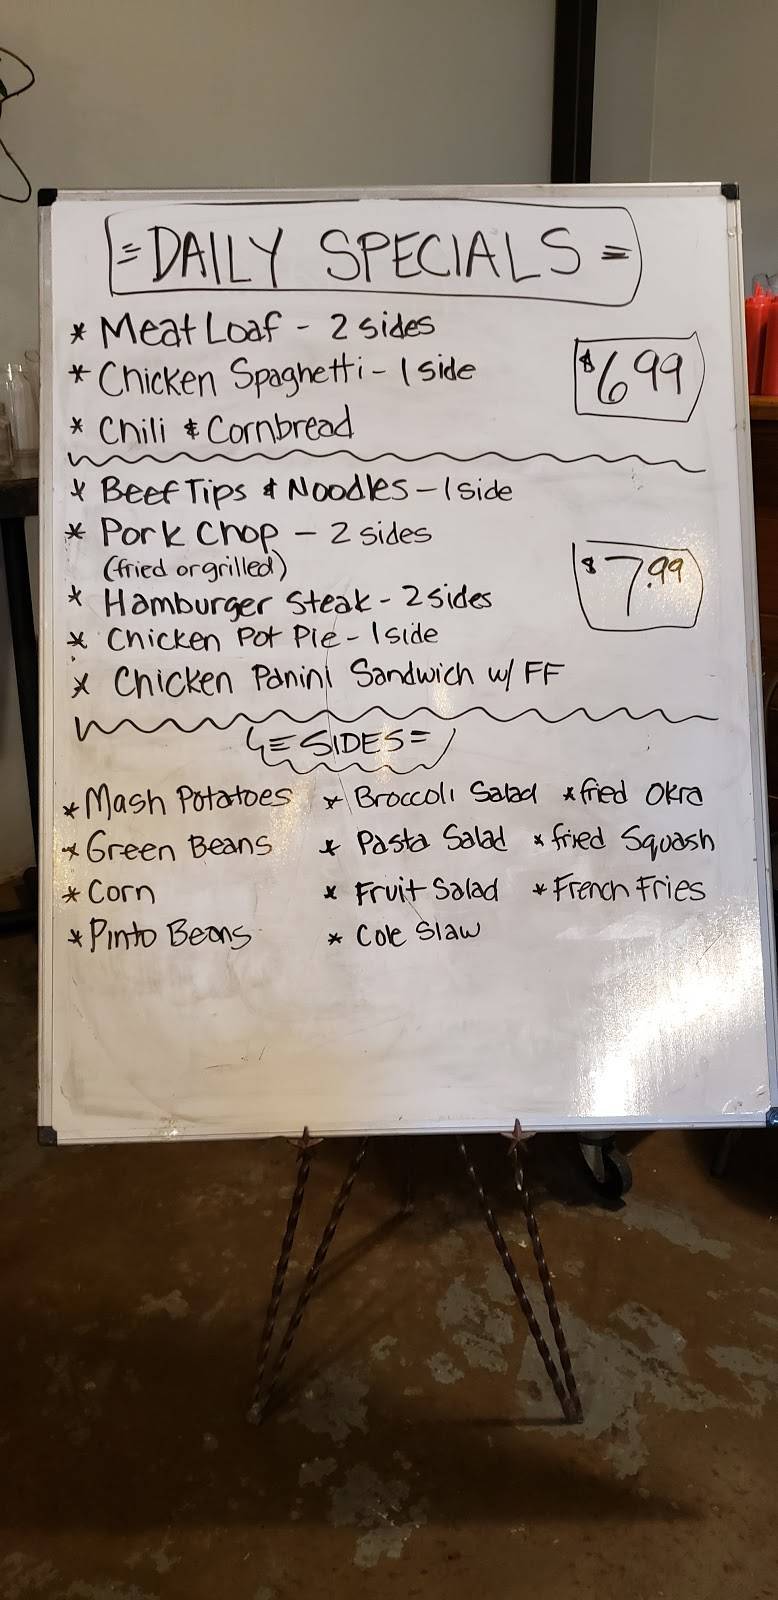 = DAILY SPECIALS =
* Meat Loaf - 2 sides
* Chicken Spaghetti - 1 side
* Chili & Cornbread
$6.99
* Beef Tips & Noodles - 1 side
* Pork Chop - 2 sides
(fried or grilled)
* Hamburger Steak - 2 sides
* Chicken Pot Pie - 1 side
* Chicken Panini Sandwich w/ FF
$7.99
= SIDES =
* Mash Potatoes * Broccoli Salad * fried Okra
* Green Beans * Pasta Salad * fried Squash
* Corn * Fruit Salad * French Fries
* Pinto Beans * Cole Slaw